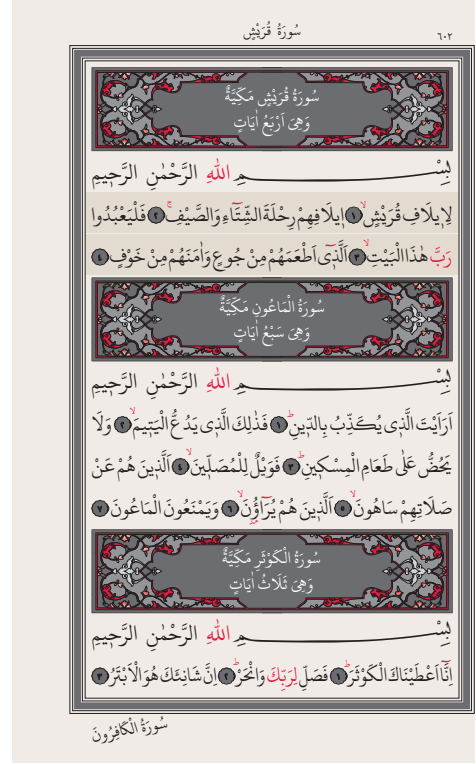 سُورَةُ قُرَيْشٍ ٦٠٢
سُورَةُ قُرَيْشٍ مَكِّيَّةٌ
وَهِيَ اَرْبَعُ اٰيَاتٍ
بِسْمِ اللّٰهِ الرَّحْمٰنِ الرَّحٖيمِ
لِاٖيلَافِ قُرَيْشٍۙ ﴿١﴾ اٖيلَافِهِمْ رِحْلَةَ الشِّتَٓاءِ وَالصَّيْفِۚ ﴿٢﴾ فَلْيَعْبُدُوا
رَبَّ هٰذَا الْبَيْتِۙ ﴿٣﴾ اَلَّذٖٓي اَطْعَمَهُمْ مِنْ جُوعٍ وَاٰمَنَهُمْ مِنْ خَوْفٍ ﴿٤﴾
سُورَةُ الْمَاعُونِ مَكِّيَّةٌ
وَهِيَ سَبْعُ اٰيَاتٍ
بِسْمِ اللّٰهِ الرَّحْمٰنِ الرَّحٖيمِ
اَرَاَيْتَ الَّذٖي يُكَذِّبُ بِالدّٖينِؕ ﴿١﴾ فَذٰلِكَ الَّذٖي يَدُعُّ الْيَتٖيمَۙ ﴿٢﴾ وَلَا
يَحُضُّ عَلٰى طَعَامِ الْمِسْكٖينِؕ ﴿٣﴾ فَوَيْلٌ لِلْمُصَلّٖينَۙ ﴿٤﴾ اَلَّذٖينَ هُمْ عَنْ
صَلَاتِهِمْ سَاهُونَۙ ﴿٥﴾ اَلَّذٖينَ هُمْ يُرَٓاؤُ۫نَۙ ﴿٦﴾ وَيَمْنَعُونَ الْمَاعُونَ ﴿٧﴾
سُورَةُ الْكَوْثَرِ مَكِّيَّةٌ
وَهِيَ ثَلَاثُ اٰيَاتٍ
بِسْمِ اللّٰهِ الرَّحْمٰنِ الرَّحٖيمِ
اِنَّٓا اَعْطَيْنَاكَ الْكَوْثَرَؕ ﴿١﴾ فَصَلِّ لِرَبِّكَ وَانْحَرْؕ ﴿٢﴾ اِنَّ شَانِئَكَ هُوَ الْاَبْتَرُ ﴿٣﴾
سُورَةُ الْكَافِرُونَ